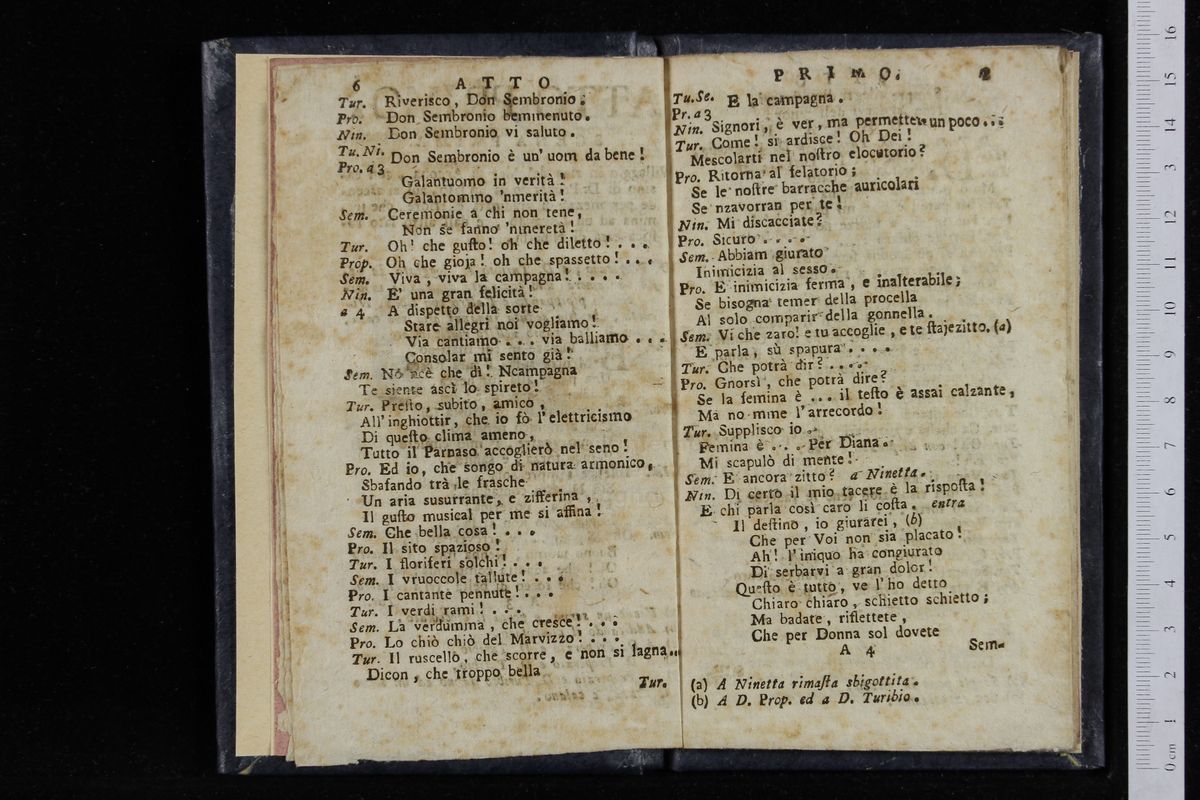 6 ATTO
Tur. Riverisco, Don Sembronio.
Pro. Don Sembronio bemmenuto.
Nin. Don Sembronio vi saluto.
Tu. Ni.
Pro. a 3 Don Sembronio è un' uom da bene!
Galantuomo in verità!
Galantommo 'nmerità!
Sem. Ceremonie a chi non tene,
Non se fanno 'nmeretà!
Tur. Oh! che gusto! oh che diletto! . . .
Prop. Oh che gioja! oh che spassetto! . . .
Sem. Viva, viva la campagna! . . . .
Nin. E' una gran felicità!
a 4 A dispetto della sorte
Stare allegri noi vogliamo!
Via cantiamo . . . via balliamo . . .
Consolar mi sento già!
Sem. No ncè che dì! Ncampagna
Te siente ascì lo spireto!
Tur. Presto, subito, amico,
All' inghiottir, che io fò l'elettricismo
Di questo clima ameno,
Tutto il Parnaso accoglierò nel seno!
Pro. Ed io, che songo di natura armonico,
Sbafando trà le frasche
Un aria susurrante, e zifferina,
Il gusto musical per me si affina!
Sem. Che bella cosa! . . .
Pro. Il sito spazioso!
Tur. I floriferi solchi! . . .
Sem. I vruoccole tallute! . . .
Pro. I cantante pennute! . . .
Tur. I verdi rami! . . .
Sem. La verdumma, che cresce! . . .
Pro. Lo chiò chiò del Marvizzo! . . .
Tur. Il ruscello, che scorre, e non si lagna...
Dicon, che troppo bella
Tur.
PRIMO.
Tu. Se. E la campagna.
Pr. a 3
Nin. Signori, è ver, ma permettete un poco...
Tur. Come! si ardisce! Oh Dei!
Mescolarti nel nostro elocutorio?
Pro. Ritorna al felatorio;
Se le nostre barracche auricolari
Se nzavorran per te!
Nin. Mi discacciate?
Pro. Sicuro . . . .
Sem. Abbiam giurato
Inimicizia al sesso.
Pro. E inimicizia ferma, e inalterabile;
Se bisogna temer della procella
Al solo comparir della gonnella.
Sem. Vi che zaro! e tu accoglie, e te staje zitto. (a)
E parla, sù spapura . . . .
Tur. Che potrà dir? . . . .
Pro. Gnorsì, che potrà dire?
Se la femina è ... il testo è assai calzante,
Ma no mme l'arrecordo!
Tur. Supplisco io .
Femina è . . . Per Diana.
Mi scapulò di mente!
Sem. E ancora zitto? a Ninetta.
Nin. Di certo il mio tacere è la risposta!
E chi parla così caro li costa. entra
Il destino, io giurarei, (b)
Che per Voi non sia placato!
Ah! l'iniquo ha congiurato
Di serbarvi a gran dolor!
Questo è tutto, ve l'ho detto
Chiaro chiaro, schietto schietto;
Ma badate, riflettete,
Che per Donna sol dovete
A 4 Sem-
(a) A Ninetta rimasta sbigottita.
(b) A D. Prop. ed a D. Turibio.